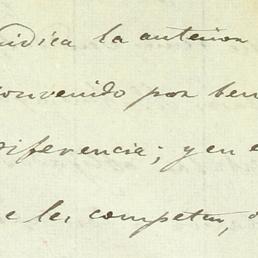 indica la anterior
convenido por ben
diferencia; y en e
e les competen,